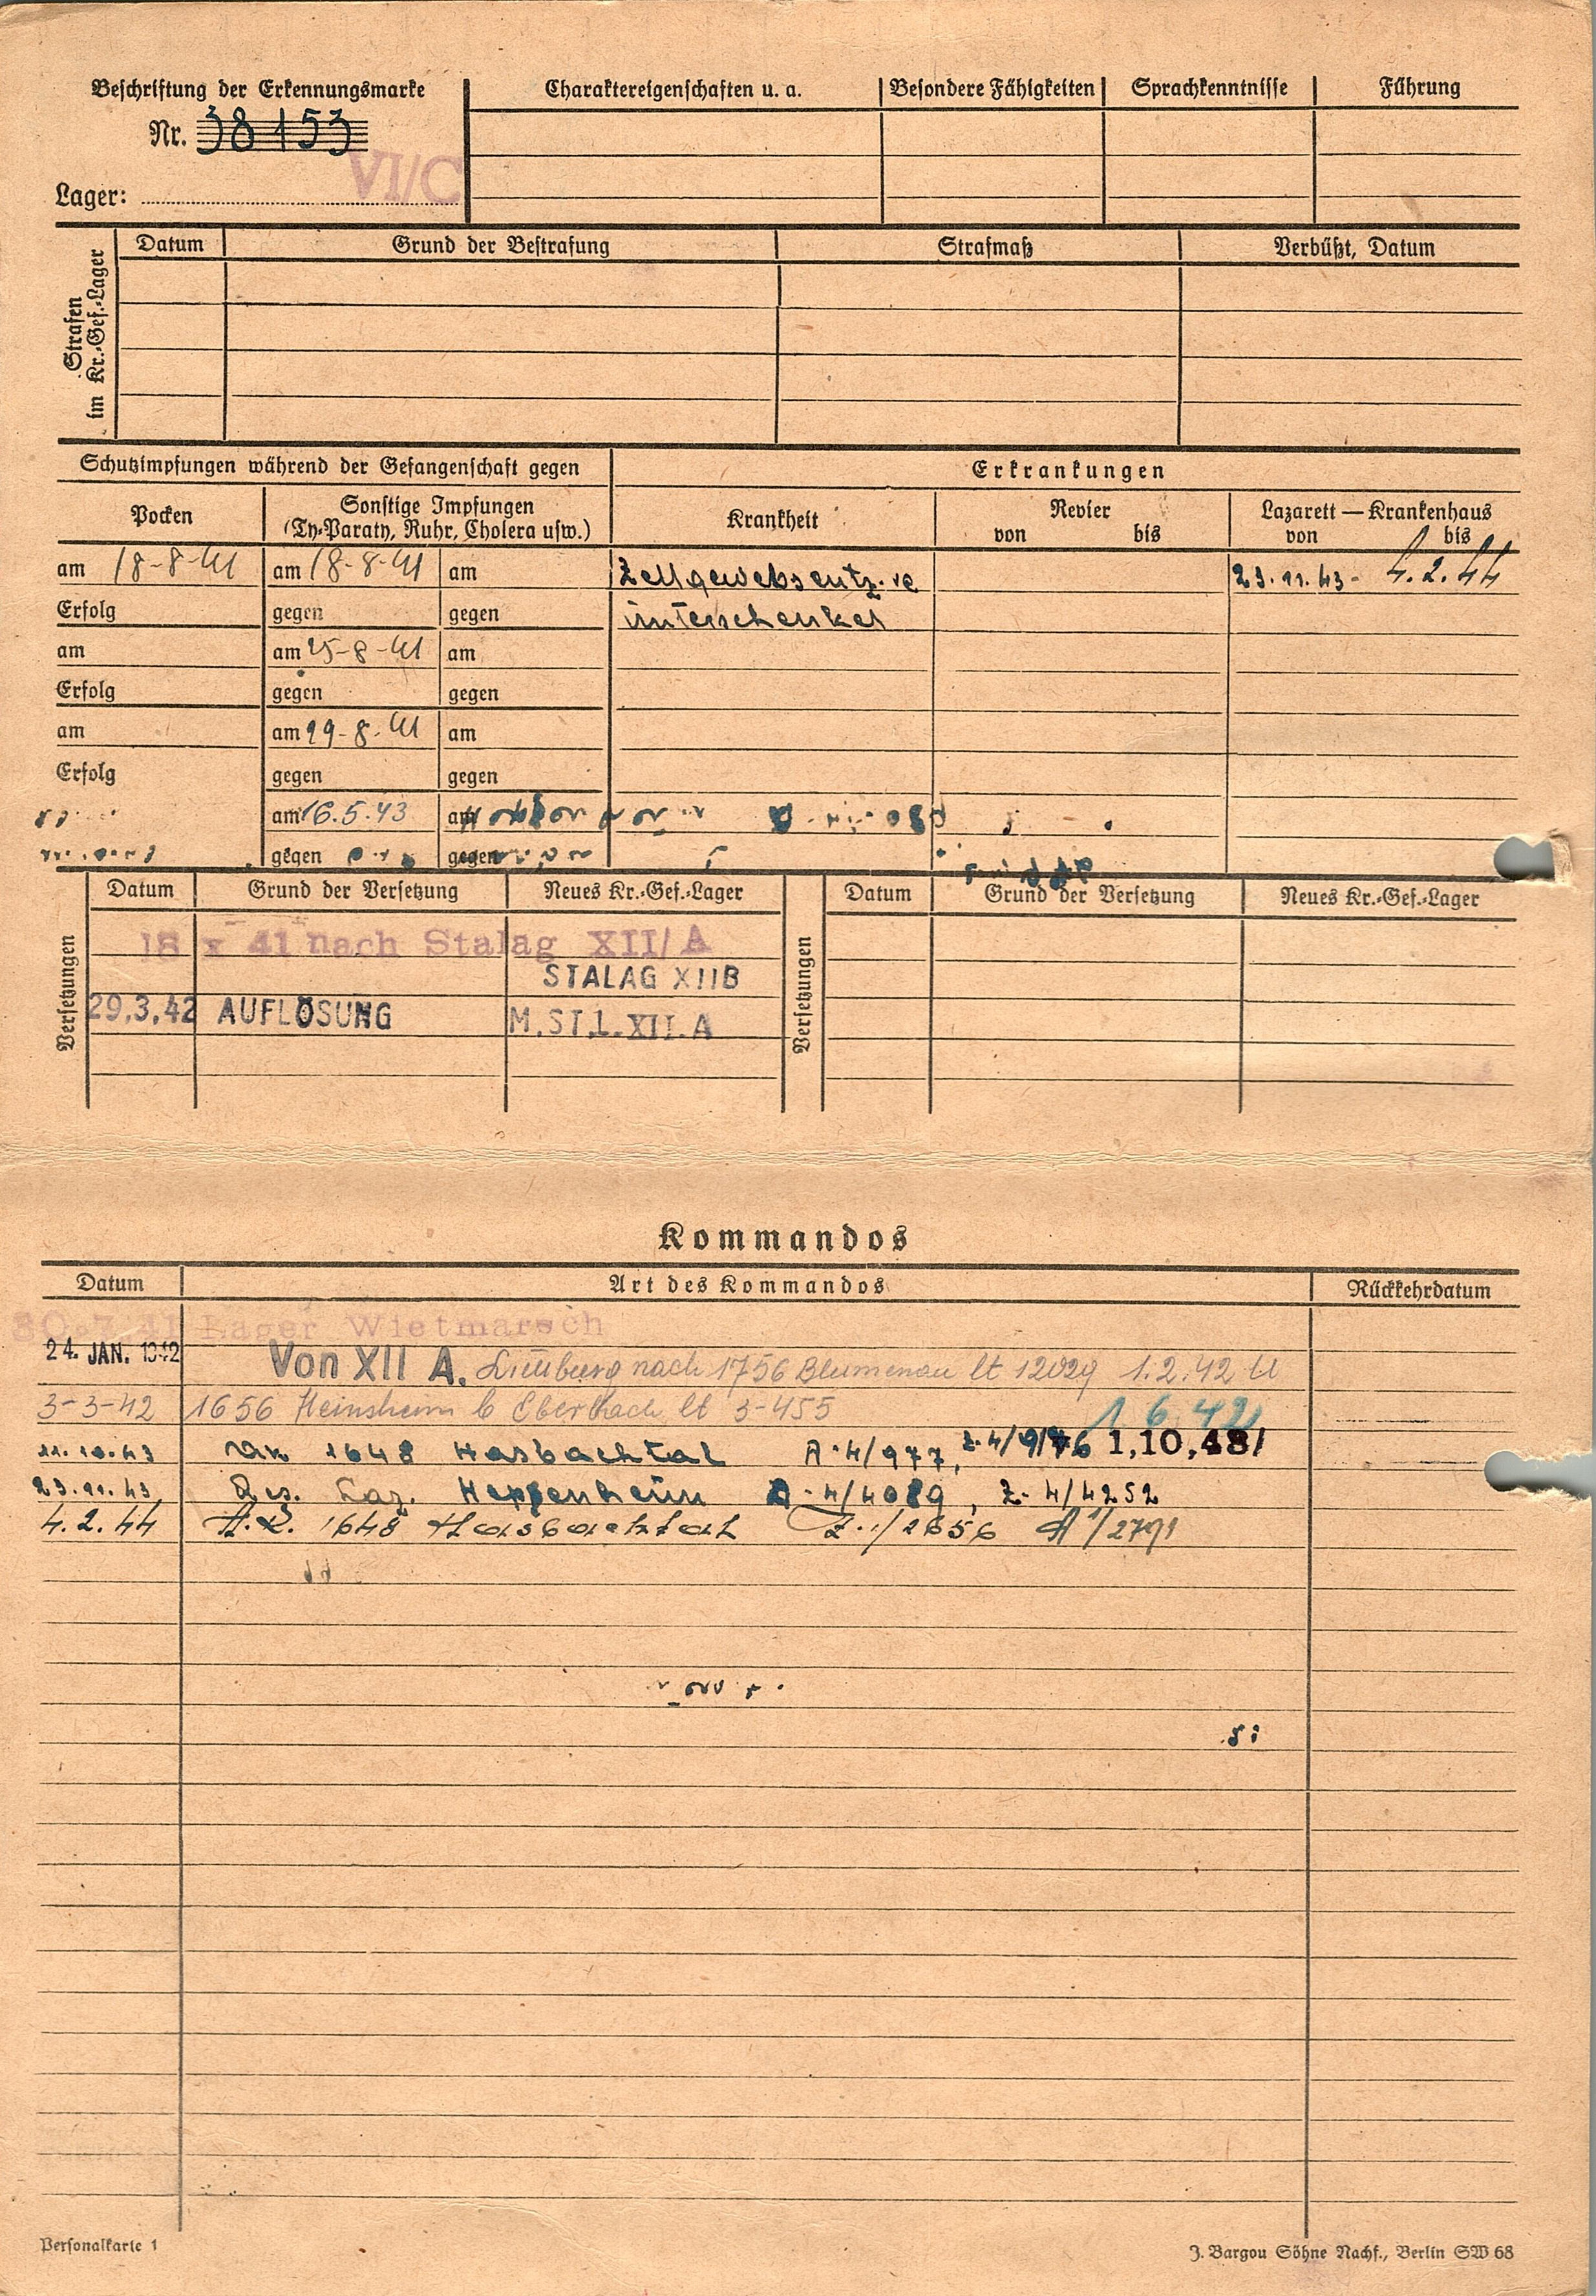 Beschriftung der Erkennungsmarke
Nr. 38153
VI/C
Lager:
Charaktereigenschaften u. a.
Besondere Fähigkeiten
Sprachkenntnisse
Führung
Strafen im Kr.-Gef.-Lager
Datum
Grund der Bestrafung
Strafmaß
Verbüßt, Datum
Schutzimpfungen während der Gefangenschaft gegen
Erkrankungen
Pocken
Sonstige Impfungen
(Ty-Paraty, Ruhr, Cholera usw.)
Krankheit
Revier
von bis
Lazarett — Krankenhaus
von bis
am 18-8-41 am 18-8-41 am Zellgewebsentz. 23.11.43- 4.2.44
Erfolg gegen gegen unterschenkel
am am 25-8-41 am
Erfolg gegen gegen
am am 29-8-41 am
Erfolg gegen gegen
am 16.5.43 am
gegen gegen
Versetzungen
Datum Grund der Versetzung Neues Kr.-Gef.-Lager
Versetzungen
Datum Grund der Versetzung Neues Kr.-Gef.-Lager
18 x 41 nach Stalag XII/A
STALAG XIIB
29.3.42 AUFLÖSUNG M.ST.L.XII.A
Kommandos
Datum Art des Kommandos Rückkehrdatum
30.7.41 Lager Wietmarsch
24. JAN. 1942 Von XII A. Limburg nach 1756 Blumenau lt 12029 1.2.42
3-3-42 1656 Heinsheim b Eberbach lt 3-455 1 6 42
11.10.43 1648 Hasbachtal A-4/977, Z-4/976 1,10,43/
23.11.43 Res. Laz. Heppenheim A-4/4089, Z-4/4252
4.2.44 A.K. 1648 Hasbachtal Z-1/2656 A 1/2791
Personalkarte 1
J. Bargou Söhne Nachf., Berlin SW 68